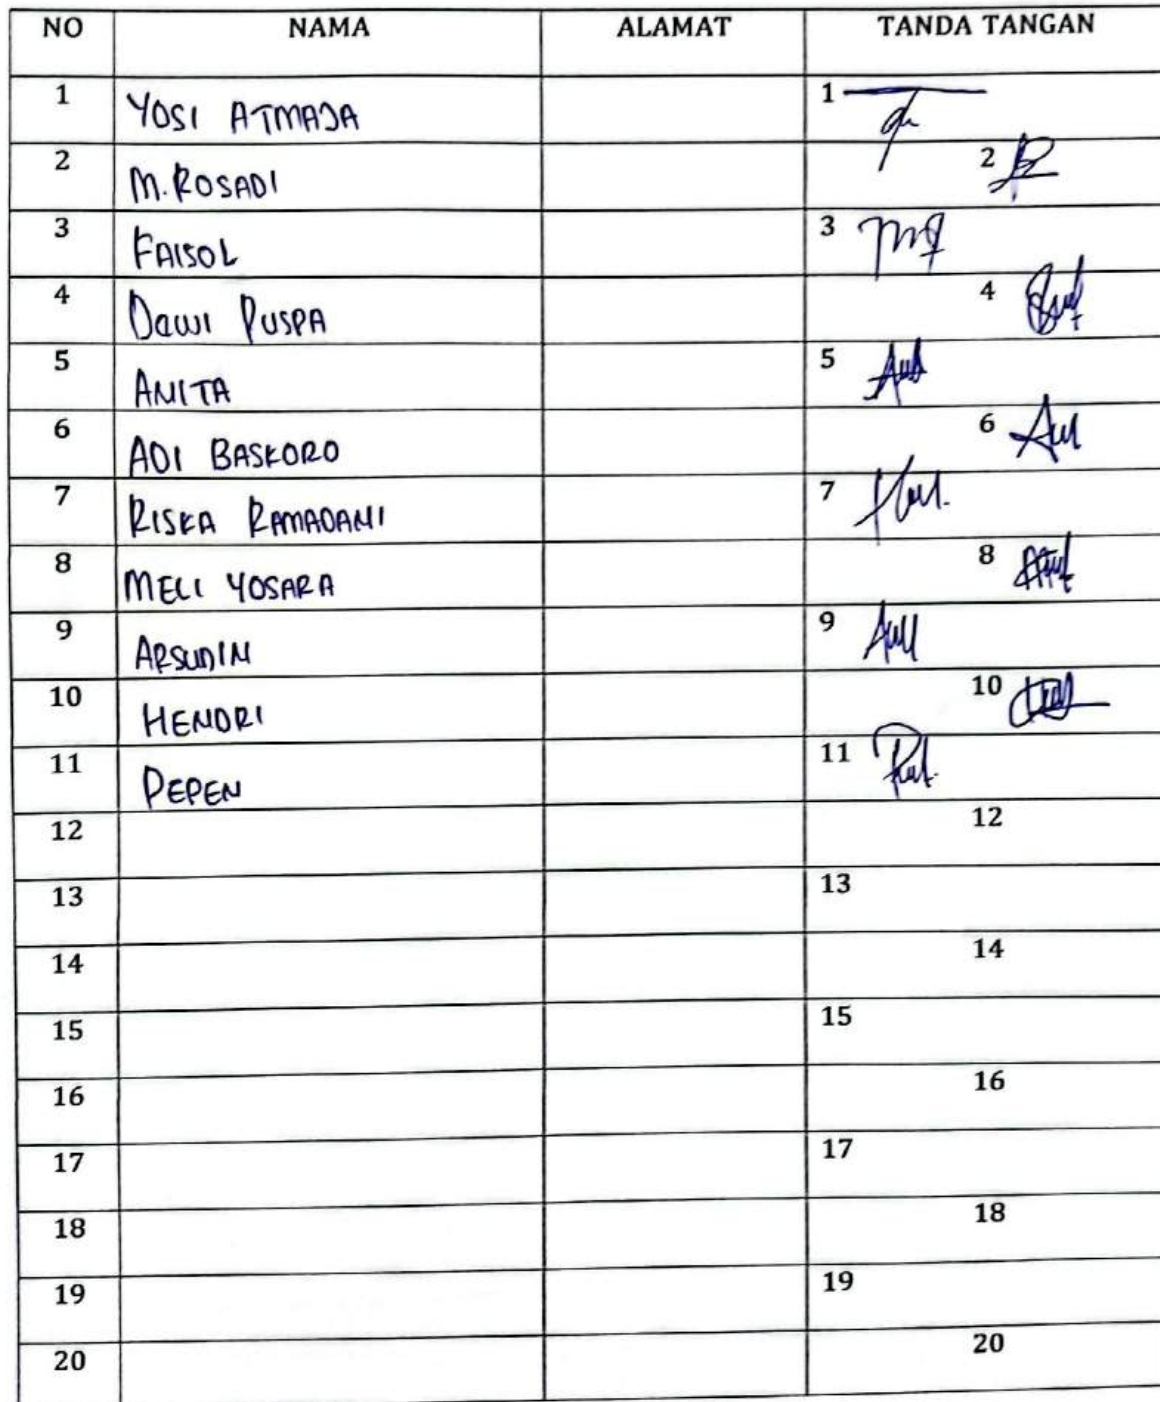 NO NAMA ALAMAT TANDA TANGAN
1 YOSI ATMAJA 1
2 M. ROSADI 2
3 FAISOL 3
4 Dewi PUSPA 4
5 ANITA 5
6 ADI BASKORO 6
7 RISKA RAMADANI 7
8 MELI YOSARA 8
9 ARSUDIN 9
10 HENDRI 10
11 PEPEN 11
12 12
13 13
14 14
15 15
16 16
17 17
18 18
19 19
20 20